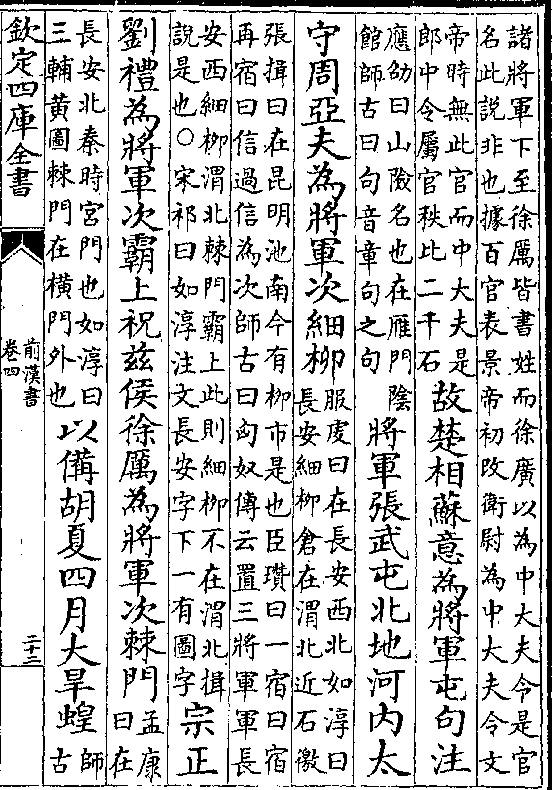 諸將軍下至徐厲皆書姓而徐廣以為中大夫令是官
名此說非也據百官表景帝初改衛尉為中大夫令文
帝時無此官而中大夫是
郎中令屬官秩比二千石
故楚相蘇意為將軍屯句注
應劭曰山險名也在雁門陰
館師古曰句音章句之句
將軍張武屯北地河內太
守周亞夫為將軍次細柳
服虔曰在長安西北如淳曰
長安細柳倉在渭北近石徼
張揖曰在昆明池南今有柳市是也臣瓚曰一宿曰宿
再宿曰信過信為次師古曰匈奴傳云置三將軍軍長
安西細柳渭北棘門霸上此則細柳不在渭北揖
說是也○宋祁曰如淳注文長安字下一有圖字
宗正
劉禮為將軍次霸上祝兹侯徐厲為將軍次棘門
孟康
曰在
長安北秦時宮門也如淳曰
三輔黃圖棘門在橫門外也
以備胡夏四月大旱蝗
師
古
欽定四庫全書
前漢書
卷四
二十三